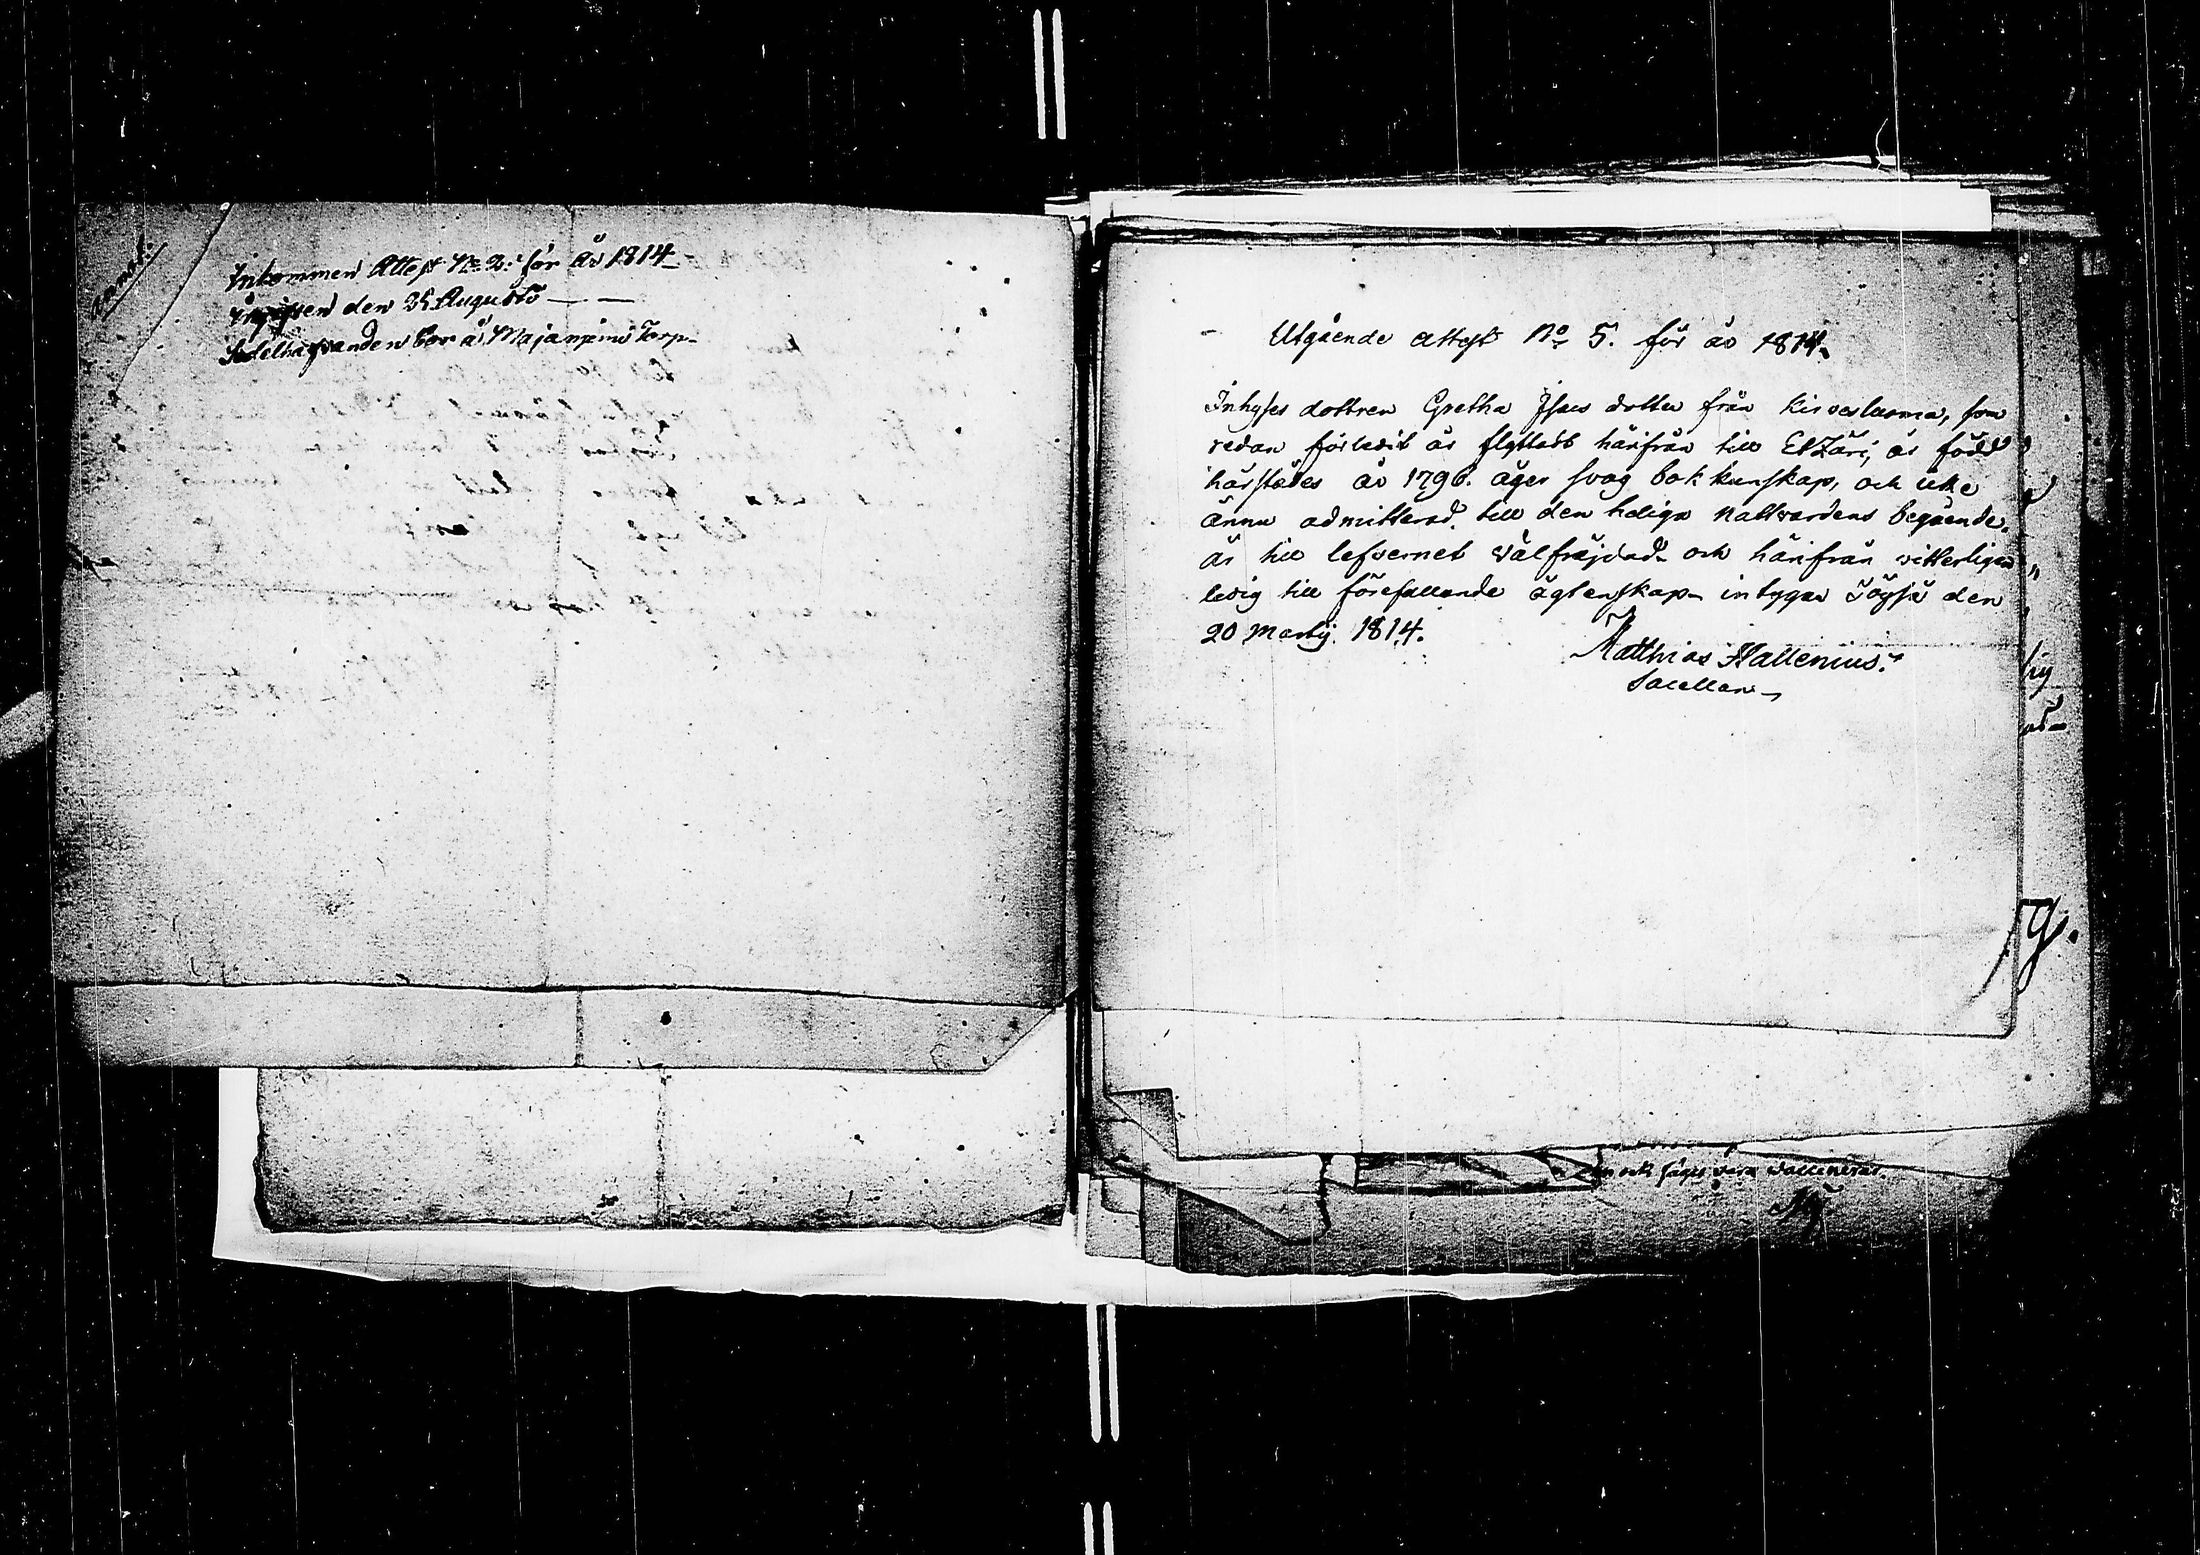 Inkommen Attest No 2. för År 1814
den 28 Augusti
Sedelhafvanden bor å Majanpimi Torp
Utgående attest No 5. för år 1814.
Inhyses dottren Gretha Isacs dotter från Kirvesluoma, som
redan förledit år flyttadt härifrån till Etzäri, är född
härstädes år 1796. äger svag bok kunskap, och icke
ännu admitterad till den heliga nattvardens begående.
är till lefvernet välfräjdad och härifrån vitterligen
ledig till förefallande ägtenskap intygar Töysä den
20 Martij 1814.
Matthias Hallenius.
Sacellan
hig
och säges vara vaccinerad.